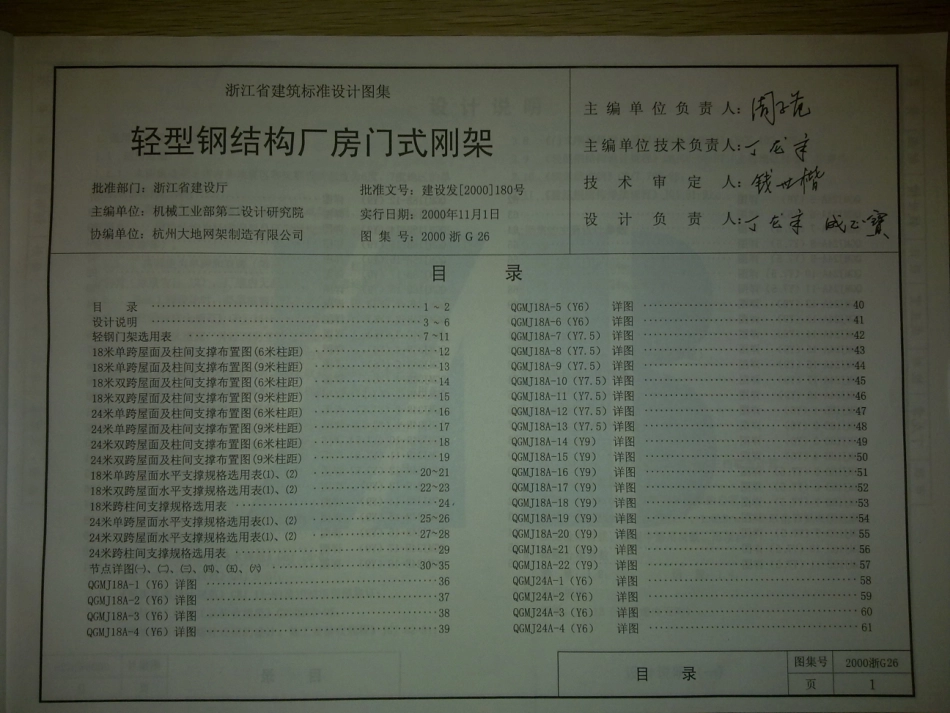 浙江省建筑标准设计图集
轻型钢结构厂房门式刚架
批准部门：浙江省建设厅 批准文号：建设发[2000]180号
主编单位：机械工业部第二设计研究院 实行日期：2000年11月1日
协编单位：杭州大地网架制造有限公司 图集号：2000浙G26
主编单位负责人：
主编单位技术负责人：
技术审定人：钱世楷
设计负责人：
目 录
目 录 1～2
设计说明 3～6
轻钢门架选用表 7～11
18米单跨屋面及柱间支撑布置图(6米柱距) 12
18米单跨屋面及柱间支撑布置图(9米柱距) 13
18米双跨屋面及柱间支撑布置图(6米柱距) 14
18米双跨屋面及柱间支撑布置图(9米柱距) 15
24米单跨屋面及柱间支撑布置图(6米柱距) 16
24米单跨屋面及柱间支撑布置图(9米柱距) 17
24米双跨屋面及柱间支撑布置图(6米柱距) 18
24米双跨屋面及柱间支撑布置图(9米柱距) 19
18米单跨屋面水平支撑规格选用表⑴、⑵ 20~21
18米双跨屋面水平支撑规格选用表⑴、⑵ 22~23
18米跨柱间支撑规格选用表 24
24米单跨屋面水平支撑规格选用表⑴、⑵ 25~26
24米双跨屋面水平支撑规格选用表⑴、⑵ 27~28
24米跨柱间支撑规格选用表 29
节点详图㈠、㈡、㈢、㈣、㈤、㈥ 30~35
QGMJ18A-1（Y6）详图 36
QGMJ18A-2（Y6）详图 37
QGMJ18A-3（Y6）详图 38
QGMJ18A-4（Y6）详图 39
QGMJ18A-5（Y6） 详图 40
QGMJ18A-6（Y6） 详图 41
QGMJ18A-7（Y7.5） 详图 42
QGMJ18A-8（Y7.5） 详图 43
QGMJ18A-9（Y7.5） 详图 44
QGMJ18A-10（Y7.5）详图 45
QGMJ18A-11（Y7.5）详图 46
QGMJ18A-12（Y7.5）详图 47
QGMJ18A-13（Y7.5）详图 48
QGMJ18A-14（Y9） 详图 49
QGMJ18A-15（Y9） 详图 50
QGMJ18A-16（Y9） 详图 51
QGMJ18A-17（Y9） 详图 52
QGMJ18A-18（Y9） 详图 53
QGMJ18A-19（Y9） 详图 54
QGMJ18A-20（Y9） 详图 55
QGMJ18A-21（Y9） 详图 56
QGMJ18A-22（Y9） 详图 57
QGMJ24A-1（Y6） 详图 58
QGMJ24A-2（Y6） 详图 59
QGMJ24A-3（Y6） 详图 60
QGMJ24A-4（Y6） 详图 61
目 录 图集号 2000浙G26
页 1